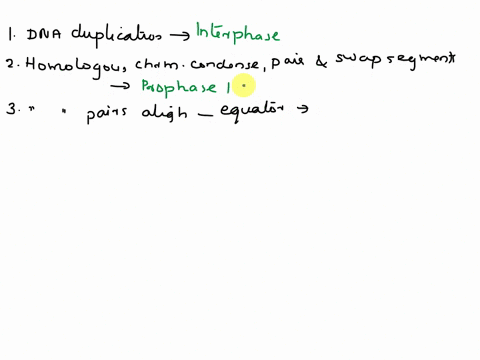 1. DNA duplication → Interphase
2. Homologous, chrom. condense, pair & swap segment
→ Prophase I
3. " " pairs align — equator →